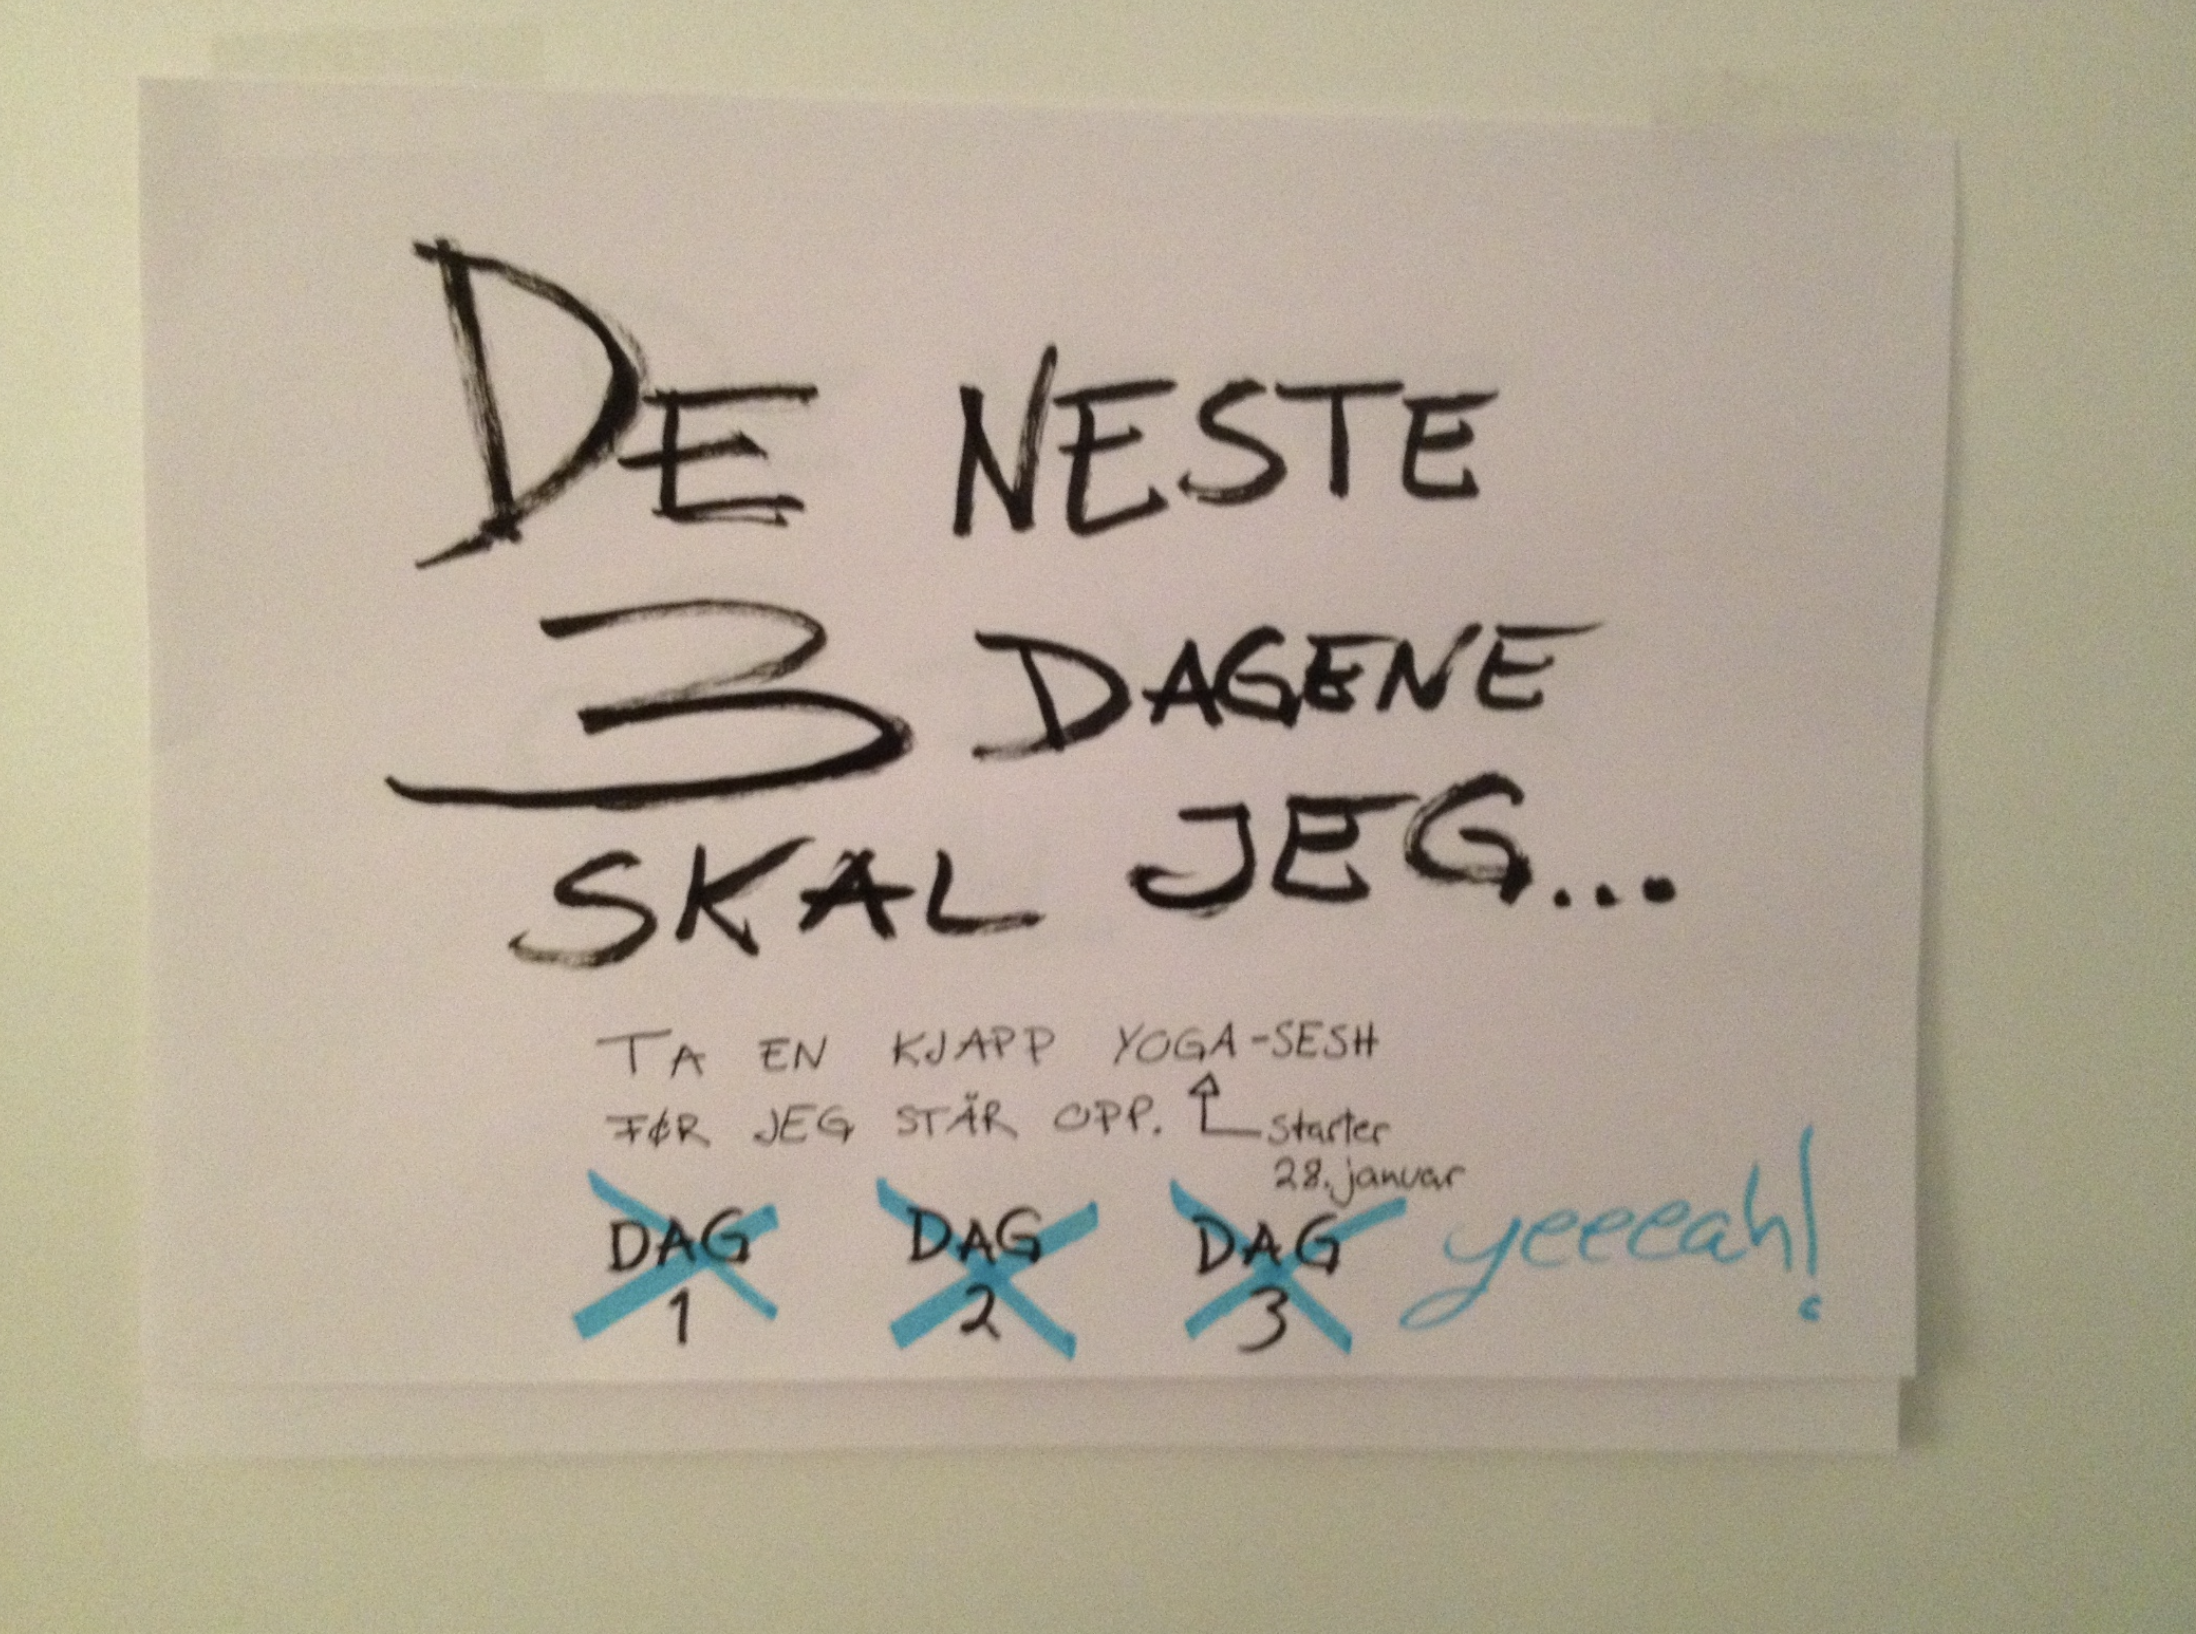 DE NESTE
3 DAGENE
SKAL JEG...
TA EN KJAPP YOGA-SESH
FØR JEG STÅR OPP.
starter
28. januar
DAG 1
DAG 2
DAG 3
yeeeah!